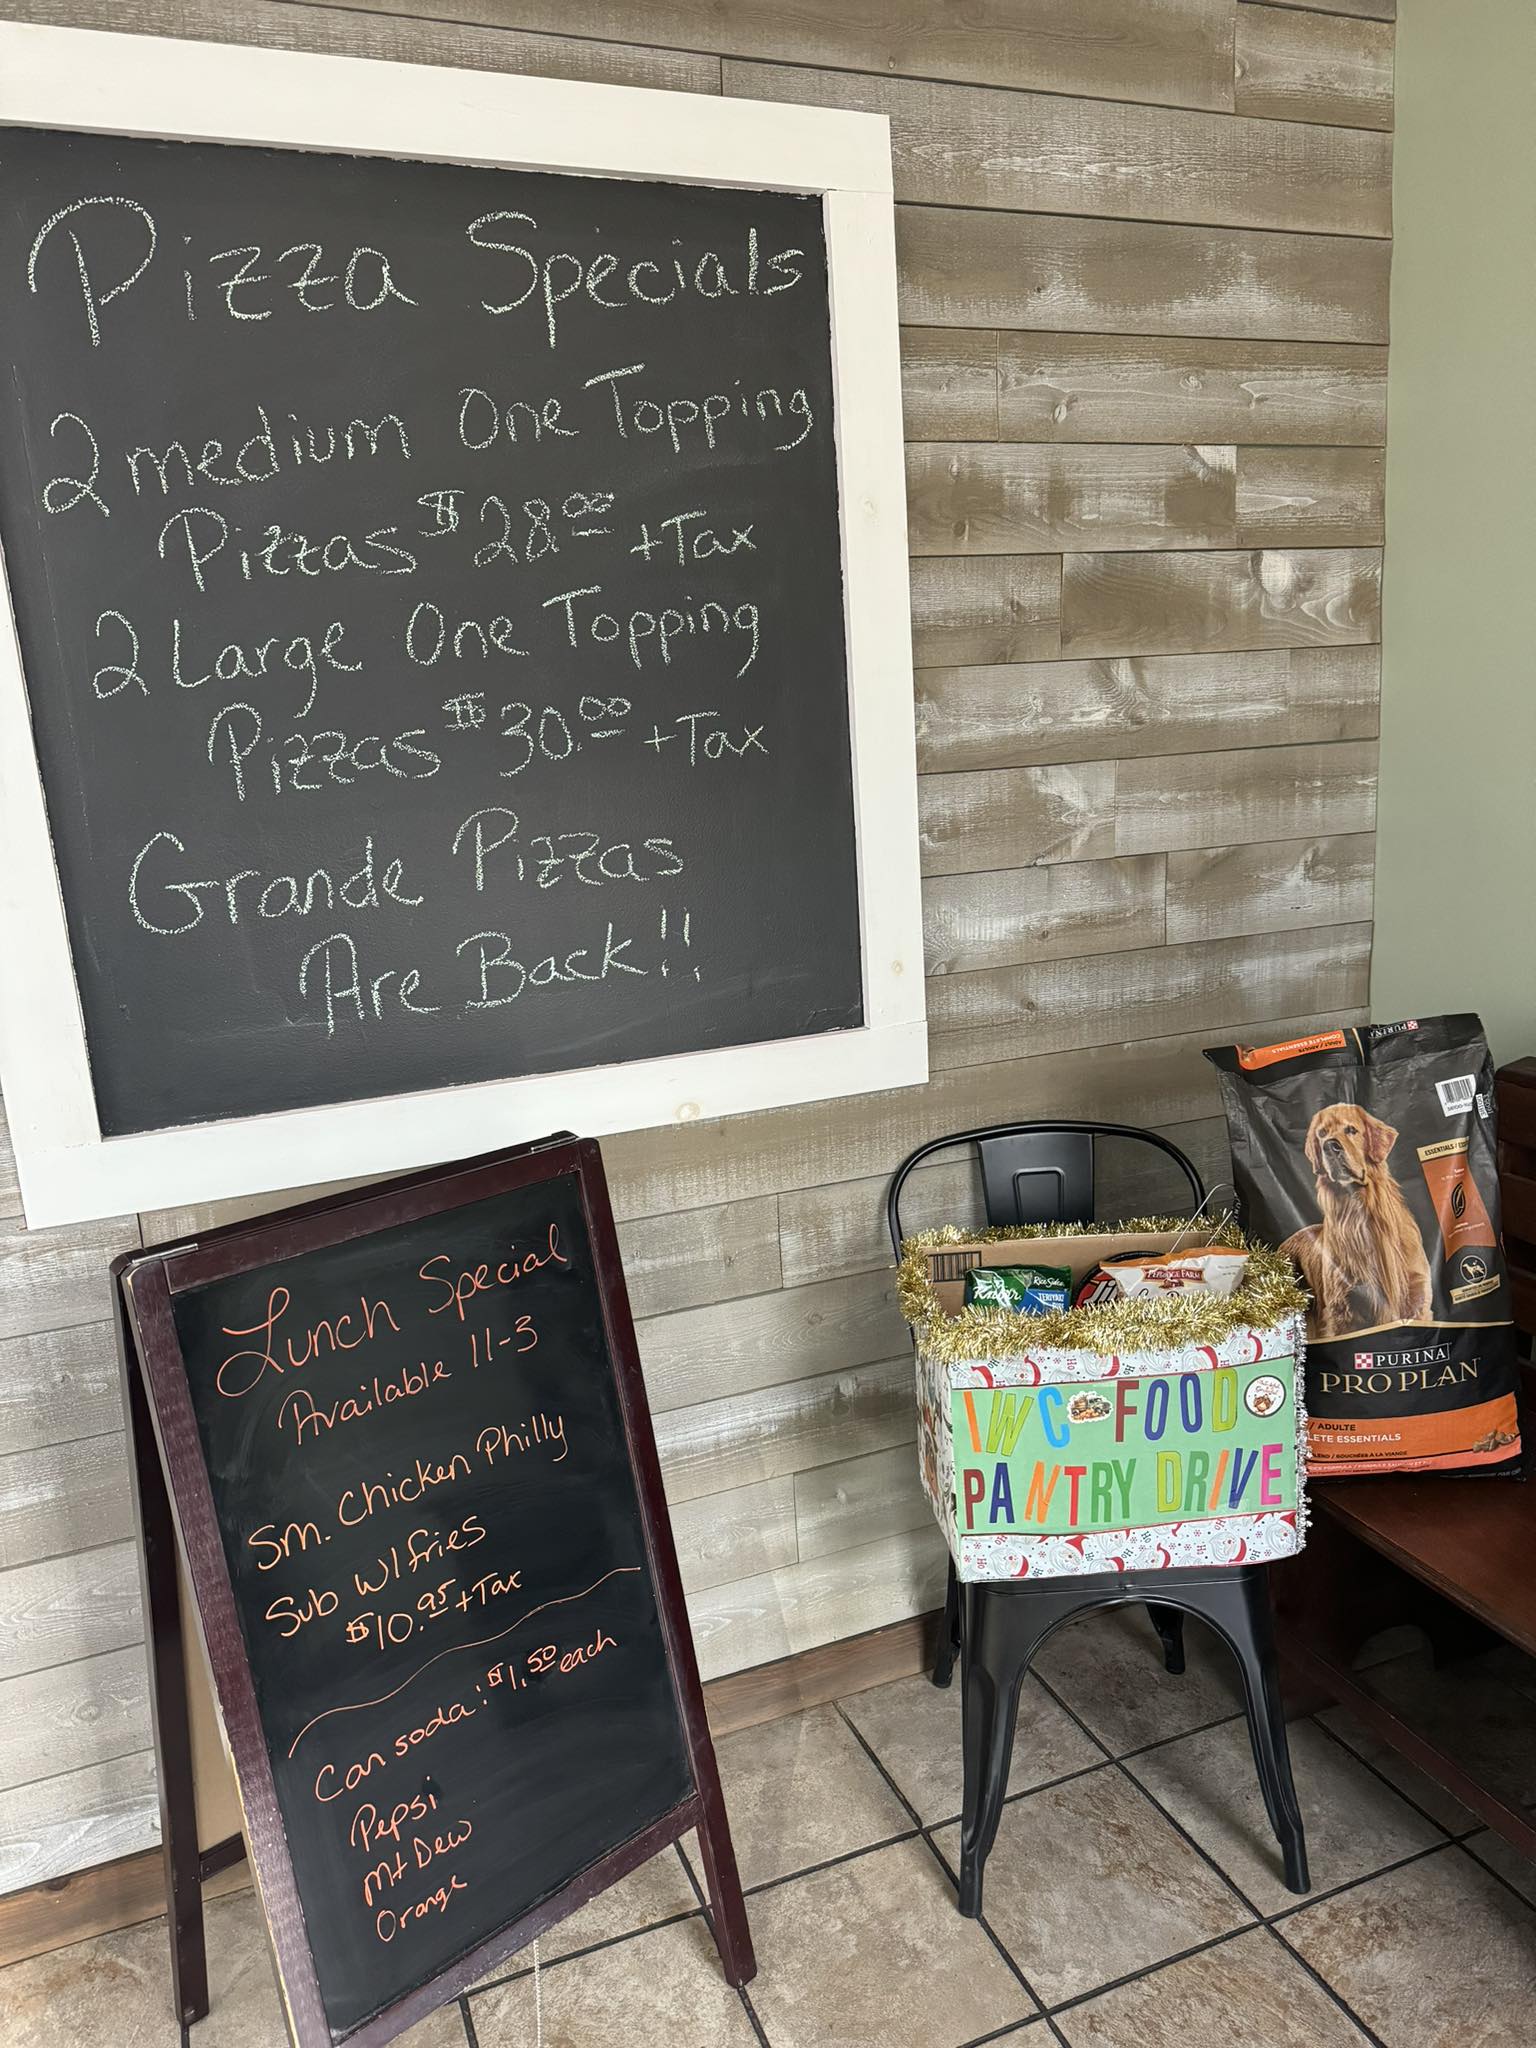 Pizza Specials
2 medium One Topping
Pizzas $28.00 + Tax
2 Large One Topping
Pizzas $30.00 + Tax
Grande Pizzas
Are Back!!
Lunch Special
Available 11-3
Sm. Chicken Philly
Sub w/ fries
$10.95 + Tax
Can soda: $1.50 each
Pepsi
Mt Dew
Orange
Knorr
Rice Sides
TERIYAKI
PEPPERIDGE FARM
IWC FOOD
PANTRY DRIVE
PURINA
COMPLETE ESSENTIALS
PURINA
PRO PLAN
/ ADULTE
LETE ESSENTIALS